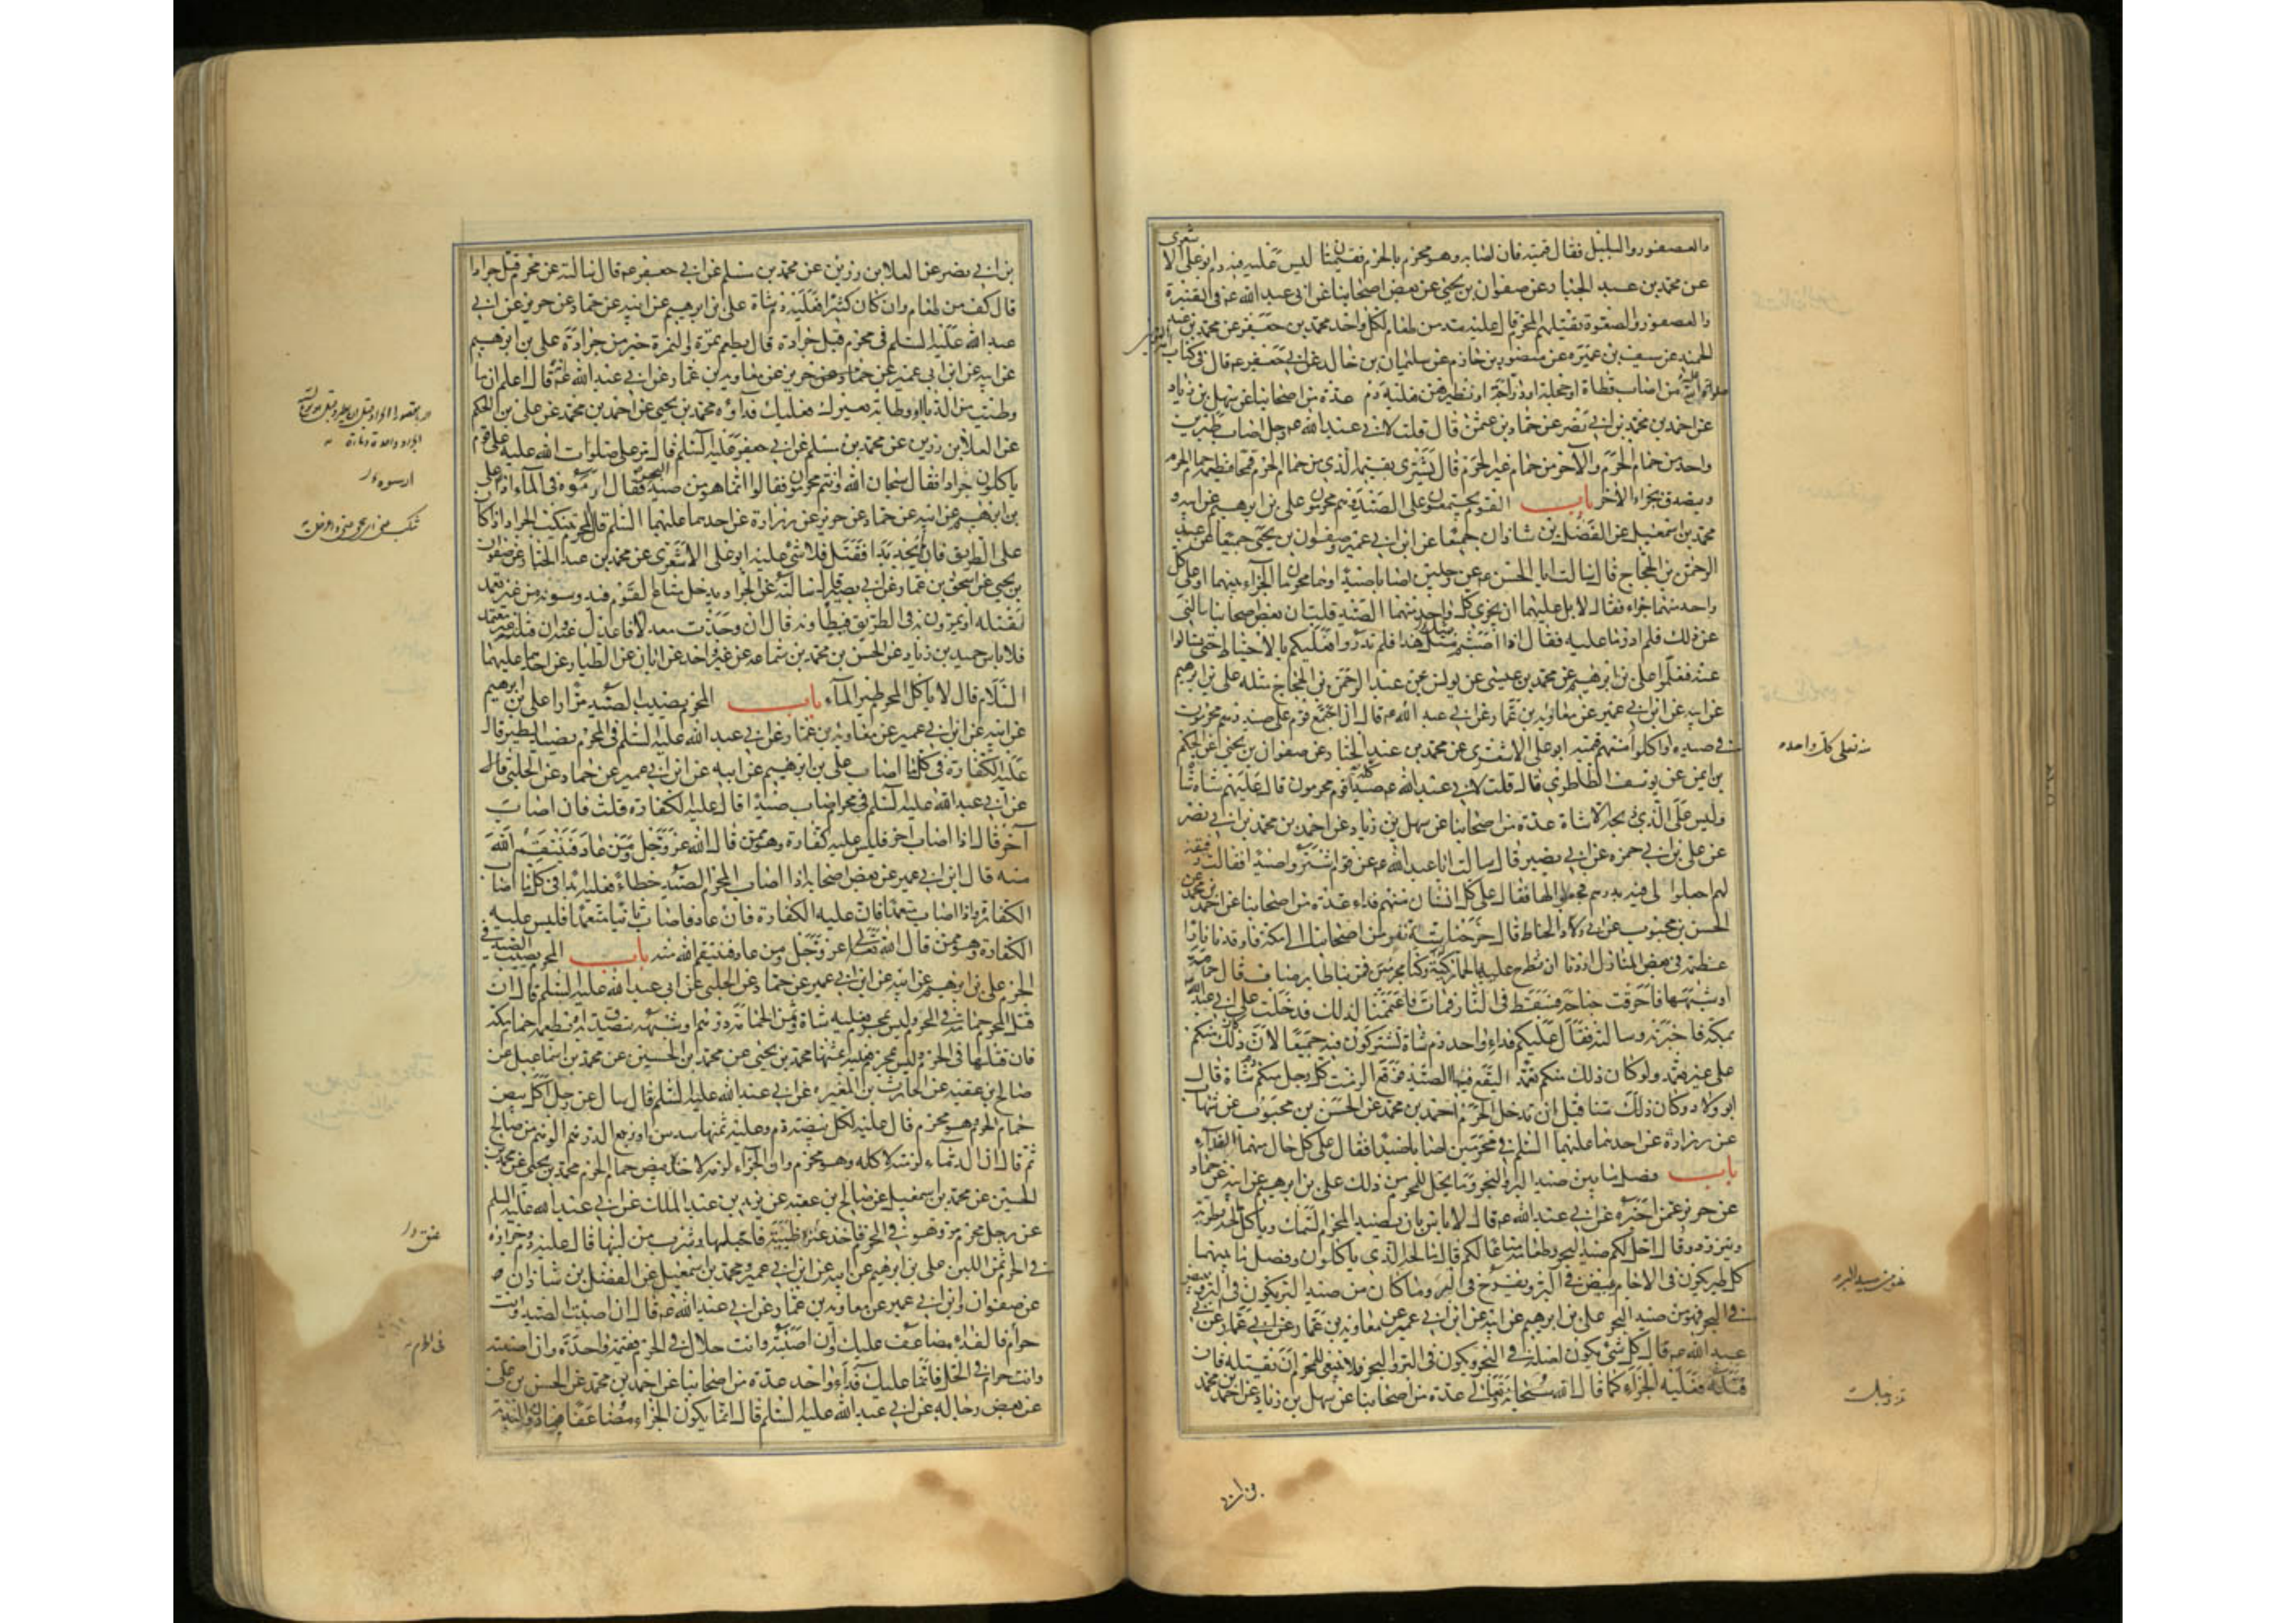 والعصفور والبلبل فقال قيمته فان اصابه وهو محرم بالحرم فقيمتان ليس عليه فيه دم ابو على الا
شعرى
عن محمد بن عبد الجبار عن صفوان بن يحيى عن بعض اصحابنا عن ابى عبد الله ع فى القنبرة
والعصفور والصعوة يقتلهم المحرم قال عليه مد من طعام لكل واحد محمد بن جعفر عن محمد بن عبد
الحميد عن سيف بن عميرة عن منصور بن حازم عن سليمان بن خالد عن ابى جعفر ع قال فى كتاب
من اصاب قطاة او حجلة او دراجة او نظيرهن فعليه دم عدة من اصحابنا عن سهل بن زياد
عن احمد بن محمد بن ابى نصر عن حماد بن عثمن قال قلت لابى عبد الله ع رجل اصاب طيرين
واحد من حمام الحرم والآخر من حمام غير الحرم قال يشترى بقيمة الذى من حمام الحرم قمحا فيطعمه حمام الحرم
ويتصدق بجزاء الآخر باب القوم يجتمعون على الصيد وهم محرمون على بن ابرهيم عن ابيه و
محمد بن اسمعيل عن الفضل بن شاذان جميعا عن ابن ابى عمير وصفوان بن يحيى جميعا عن عبد
الرحمن بن الحجاج قال سالت ابا الحسن ع عن رجلين اصابا صيدا وهما محرمان الجزاء بينهما او على كل
واحد منهما جزاء فقال لا بل عليهما ان يجزى كل واحد منهما الصيد قلت ان بعض اصحابنا سالنى
عن ذلك فلم ادر ما عليه فقال اذا اصبتم مثل هذا فلم تدروا فعليكم بالاحتياط حتى تسالوا
عنه فتعلموا على بن ابرهيم عن محمد بن عيسى عن يونس عن عبد الرحمن بن الحجاج مثله على بن ابرهيم
عن ابيه عن ابن ابى عمير عن معاوية بن عمار عن ابى عبد الله ع قال اذا اجتمع قوم على صيد وهم محرمون
فى صيده او اكلوا منه فعليهم قيمته ابو على الاشعرى عن محمد بن عبد الجبار عن صفوان بن يحيى عن الحكم
بن ايمن عن يوسف الطاطرى قال قلت لابى عبد الله ع صيد اكله قوم محرمون قال عليهم شاة شاة
وليس على الذى ذبحه الا شاة عدة من اصحابنا عن سهل بن زياد عن احمد بن محمد بن ابى نصر
عن على بن ابى حمزه عن ابى بصير قال سالت ابا عبد الله ع عن قوم اشتروا صيدا فقالت رفيقة
لهم اجعلوا لى فيه بدرهم فجعلوا لها فقال على كل انسان منهم فداء عدة من اصحابنا عن احمد بن محمد عن
الحسن بن محبوب عن ابى ولاد الحناط قال خرجنا ستة نفر من اصحابنا الى مكة فاوقدنا نارا
عظيمة فى بعض المنازل اردنا ان نطرح عليها لحما نكببه وكنا محرمين فمر بنا طاير صاف قال حمامة
او شبهها فاحرقت جناحه فسقط فى النار فمات فاغتممنا لذلك فدخلت على ابى عبد الله
بمكة فاخبرته وسالته فقال عليكم فداء واحد دم شاة تشتركون فيه جميعا لان ذلك منكم
على غير تعمد ولو كان ذلك منكم تعمدا ليقع فيها الصيد فوقع الزمت كل رجل منكم شاة قال
ابو ولاد وكان ذلك منا قبل ان ندخل الحرم احمد بن محمد عن الحسن بن محبوب عن شهاب
عن زرارة عن احدهما عليهما السلم فى محرمين اصابا صيدا فقال على كل حال منهما الفداء
باب فصل ما بين صيد البر والبحر وما يحل للمحرم من ذلك على بن ابرهيم عن ابيه عن حماد
عن حريز عمن اخبره عن ابى عبد الله ع قال لا باس بان يصيد المحرم السمك وياكل مالحه وطريه
ويتزود وقال احل لكم صيد البحر وطعامه متاعا لكم قال مالحه الذى ياكلون وفصل ما بينهما
كل طير يكون فى الاجام يبيض فى البر ويفرخ فى البر وما كان من صيد البر يكون فى البر ويبيض
فى البحر فهو من صيد البحر على بن ابرهيم عن ابيه عن ابن ابى عمير عن معاوية بن عمار عن ابى
عبد الله ع قال كل شئ يكون اصله فى البحر ويكون فى البر والبحر فلا ينبغى للمحرم ان يقتله فان
قتله فعليه الجزاء كما قال الله سبحانه وتعالى عدة من اصحابنا عن سهل بن زياد عن احمد بن محمد
فعلى كل واحد
بن ابى
بن ابى نصر عن العلا بن رزين عن محمد بن مسلم عن ابى جعفر ع قال سالته عن محرم قتل جرادا
قال كف من طعام وان كان كثيرا فعليه دم شاة على بن ابرهيم عن ابيه عن حماد عن حريز عن ابى
عبد الله عليه السلم فى محرم قتل جرادة قال يطعم تمرة والتمرة خير من جرادة على بن ابرهيم
عن ابيه عن ابن ابى عمير عن حماد عن حريز عن معاوية بن عمار عن ابى عبد الله ع قال اعلم ان ما
وطئت من الدبا او وطاته بعيرك فعليك فداؤه محمد بن يحيى عن احمد بن محمد عن على بن الحكم
عن العلا بن رزين عن محمد بن مسلم عن ابى جعفر عليه السلم قال مر على صلوات الله عليه على قوم
ياكلون جرادا فقال سبحان الله وانتم محرمون فقالوا انما هو من صيد البحر فقال ارمسوه فى المآء اذا على
بن ابرهيم عن ابيه عن حماد عن حريز عن زرارة عن احدهما عليهما السلم قال المحرم يتنكب الجراد اذا كان
على الطريق فان لم يجد بدا فقتل فلا شئ عليه ابو على الاشعرى عن محمد بن عبد الجبار عن صفوان
بن يحيى عن اسحق بن عمار عن ابى بصير قال سالته عن الجراد يدخل متاع القوم فيدوسونه من غير تعمد
لقتله او يمرون به فى الطريق فيطاونه قال ان وجدت معدلا فاعدل عنه فان قتلته غير متعمد
فلا باس حميد بن زياد عن الحسن بن محمد بن سماعه عن غير واحد عن ابان عن الطيار عن احدهما عليهما
السلام قال لا ياكل المحرم طير المآء باب المحرم يصيب الصيد مرارا على بن ابرهيم
عن ابيه عن ابن ابى عمير عن معاوية بن عمار عن ابى عبد الله عليه السلم فى المحرم يصيب الطير قال
عليه الكفارة فى كل ما اصاب على بن ابرهيم عن ابيه عن ابن ابى عمير عن حماد عن الحلبى قال
عن ابى عبد الله عليه السلم فى محرم اصاب صيدا قال عليه الكفارة قلت فان اصاب
آخر قال اذا اصاب آخر فليس عليه كفارة وهو ممن قال الله عز وجل ومن عاد فينتقم الله
منه قال ابن ابى عمير عن بعض اصحابه اذا اصاب المحرم الصيد خطاء فعليه ابدا فى كل ما اصاب
الكفارة واذا اصاب متعمدا فان عليه الكفارة فان عاد فاصاب ثانيا متعمدا فليس عليه
الكفارة وهو ممن قال الله تعالى عز وجل ومن عاد فينتقم الله منه باب المحرم يصيب الصيد فى
الحرم على بن ابرهيم عن ابيه عن ابن ابى عمير عن حماد عن الحلبى عن ابى عبد الله عليه السلم قال ان
قتل المحرم حمامة فى الحرم فعليه شاة وثمن الحمامة درهم او شبهه يتصدق به او يطعمه حمام مكة
فان قتلها فى الحرم وليس بمحرم فعليه ثمنها محمد بن يحيى عن محمد بن الحسين عن محمد بن اسماعيل عن
صالح بن عقبه عن الحارث بن المغيره عن ابى عبد الله عليه السلم قال سال عن رجل اكل بيض
حمام الحرم وهو محرم قال عليه لكل بيضة دم وعليه ثمنها سدس او ربع الدرهم الوهم من صالح
ثم قال ان الدمآء لزمته لاكله وهو محرم وان الجزآء لزمه لاخذه بيض حمام الحرم محمد بن يحيى عن محمد بن
الحسين عن محمد بن اسمعيل عن صالح بن عقبه عن يزيد بن عبد الملك عن ابى عبد الله عليه السلم
عن رجل محرم مر وهو فى الحرم فاخذ عنز ظبية فاحتلبها وشرب من لبنها قال عليه دم وجزاؤه
فى الحرم ثمن اللبن على بن ابرهيم عن ابيه عن ابن ابى عمير ومحمد بن اسمعيل عن الفضل بن شاذان
عن صفوان وابن ابى عمير عن معاوية بن عمار عن ابى عبد الله ع قال ان اصبت الصيد وانت
حرام فالفداء مضاعف عليك وان اصبته وانت حلال فى الحرم فقيمة واحدة وان اصبته
وانت حرام فى الحل فانما عليك فداء واحد عدة من اصحابنا عن احمد بن محمد عن الحسن بن على
عن بعض رجاله عن ابى عبد الله عليه السلم قال انما يكون الجزاء مضاعفا
فى الحرم